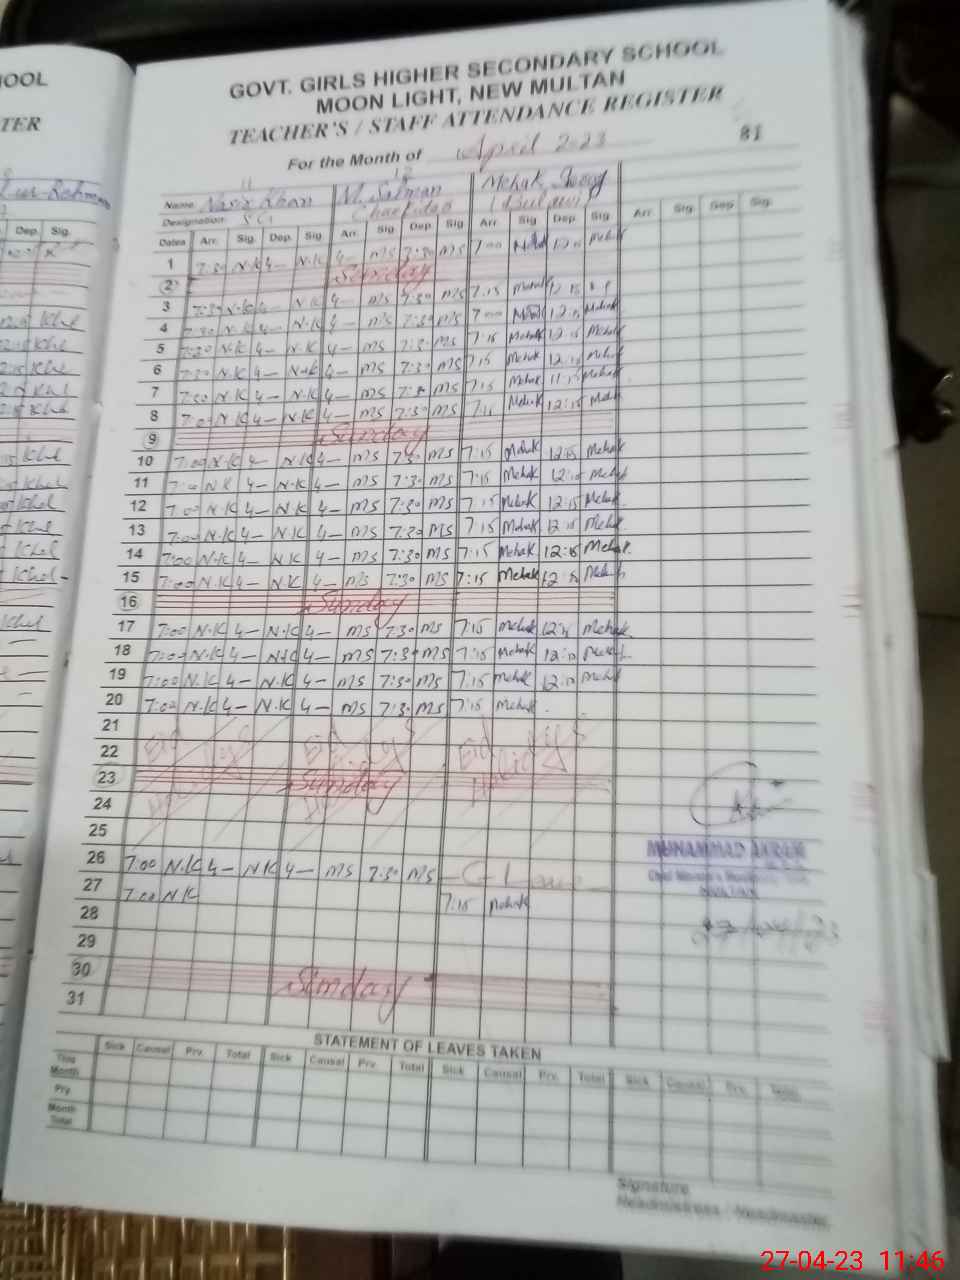 GOVT. GIRLS HIGHER SECONDARY SCHOOL
MOON LIGHT, NEW MULTAN
TEACHER'S / STAFF ATTENDANCE REGISTER
For the Month of April 2023
81
11 12
Name Nasir Khan M. Salman Mehak
Designation
Dates Arr. Sig. Dep. Sig Arr. Sig Dep Sig Arr. Sig Dep. Sig. Arr. Sig. Dep Sig.
1 7:30 N.K 4- N.K 4- MS 7:30 MS 7:00 12:15 Mehak
2 Sunday
3 7:30 N.K 4- N.K 4- MS 7:30 MS 7:15 Mehak 12:15
4 7:30 N.K 4- N.K 4- MS 7:30 MS 7:00 12:15 Mehak
5 7:30 N.K 4- N.K 4- MS 7:30 MS 7:15 Mehak 12:15 Mehak
6 7:30 N.K 4- N.K 4- MS 7:30 MS 7:15 Mehak 12:15 Mehak
7 7:30 N.K 4- N.K 4- MS 7:30 MS 7:15 Mehak 11:15 Mehak
8 7:00 N.K 4- N.K 4- MS 7:30 MS 7:15 Mehak 12:15 Mehak
9 Sunday
10 7:00 N.K 4- N.K 4- MS 7:30 MS 7:15 Mehak 12:15 Mehak
11 7:00 N.K 4- N.K 4- MS 7:30 MS 7:15 Mehak 12:15 Mehak
12 7:00 N.K 4- N.K 4- MS 7:30 MS 7:15 Mehak 12:15 Mehak
13 7:00 N.K 4- N.K 4- MS 7:30 MS 7:15 Mehak 12:15 Mehak
14 7:00 N.K 4- N.K 4- MS 7:30 MS 7:15 Mehak 12:15 Mehak
15 7:00 N.K 4- N.K 4- MS 7:30 MS 7:15 Mehak 12:15 Mehak
16 Sunday
17 7:00 N.K 4- N.K 4- MS 7:30 MS 7:15 Mehak 12:15 Mehak
18 7:00 N.K 4- N.K 4- MS 7:30 MS 7:15 Mehak 12:15 Mehak
19 7:00 N.K 4- N.K 4- MS 7:30 MS 7:15 Mehak 12:15 Mehak
20 7:00 N.K 4- N.K 4- MS 7:30 MS 7:15 Mehak
21
22 Eid Holidays Eid Holidays Eid Holidays
23 Sunday
24
25
26 7:00 N.K 4- N.K 4- MS 7:30 MS
27 7:00 N.K 7:15 Mehak
28
29
30 Sunday
31
MUHAMMAD AKRAM
STATEMENT OF LEAVES TAKEN
Sick Causal Prv. Total Sick Causal Prv. Total Sick Causal Prv. Total Sick Causal Prv. Total
This Month
Prv. Month
Total
Signature
Headmistress / Headmaster
OOL
TER
Dep. Sig.
27-04-23 11:46